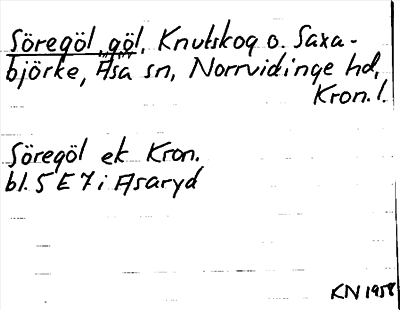 Söregöl, göl, Knutskog o. Saxa-
björke, Asa sn, Norrvidinge hd,
Kron. l.
Söregöl ek Kron.
bl. 5 E 7 i Asaryd
KN 1958